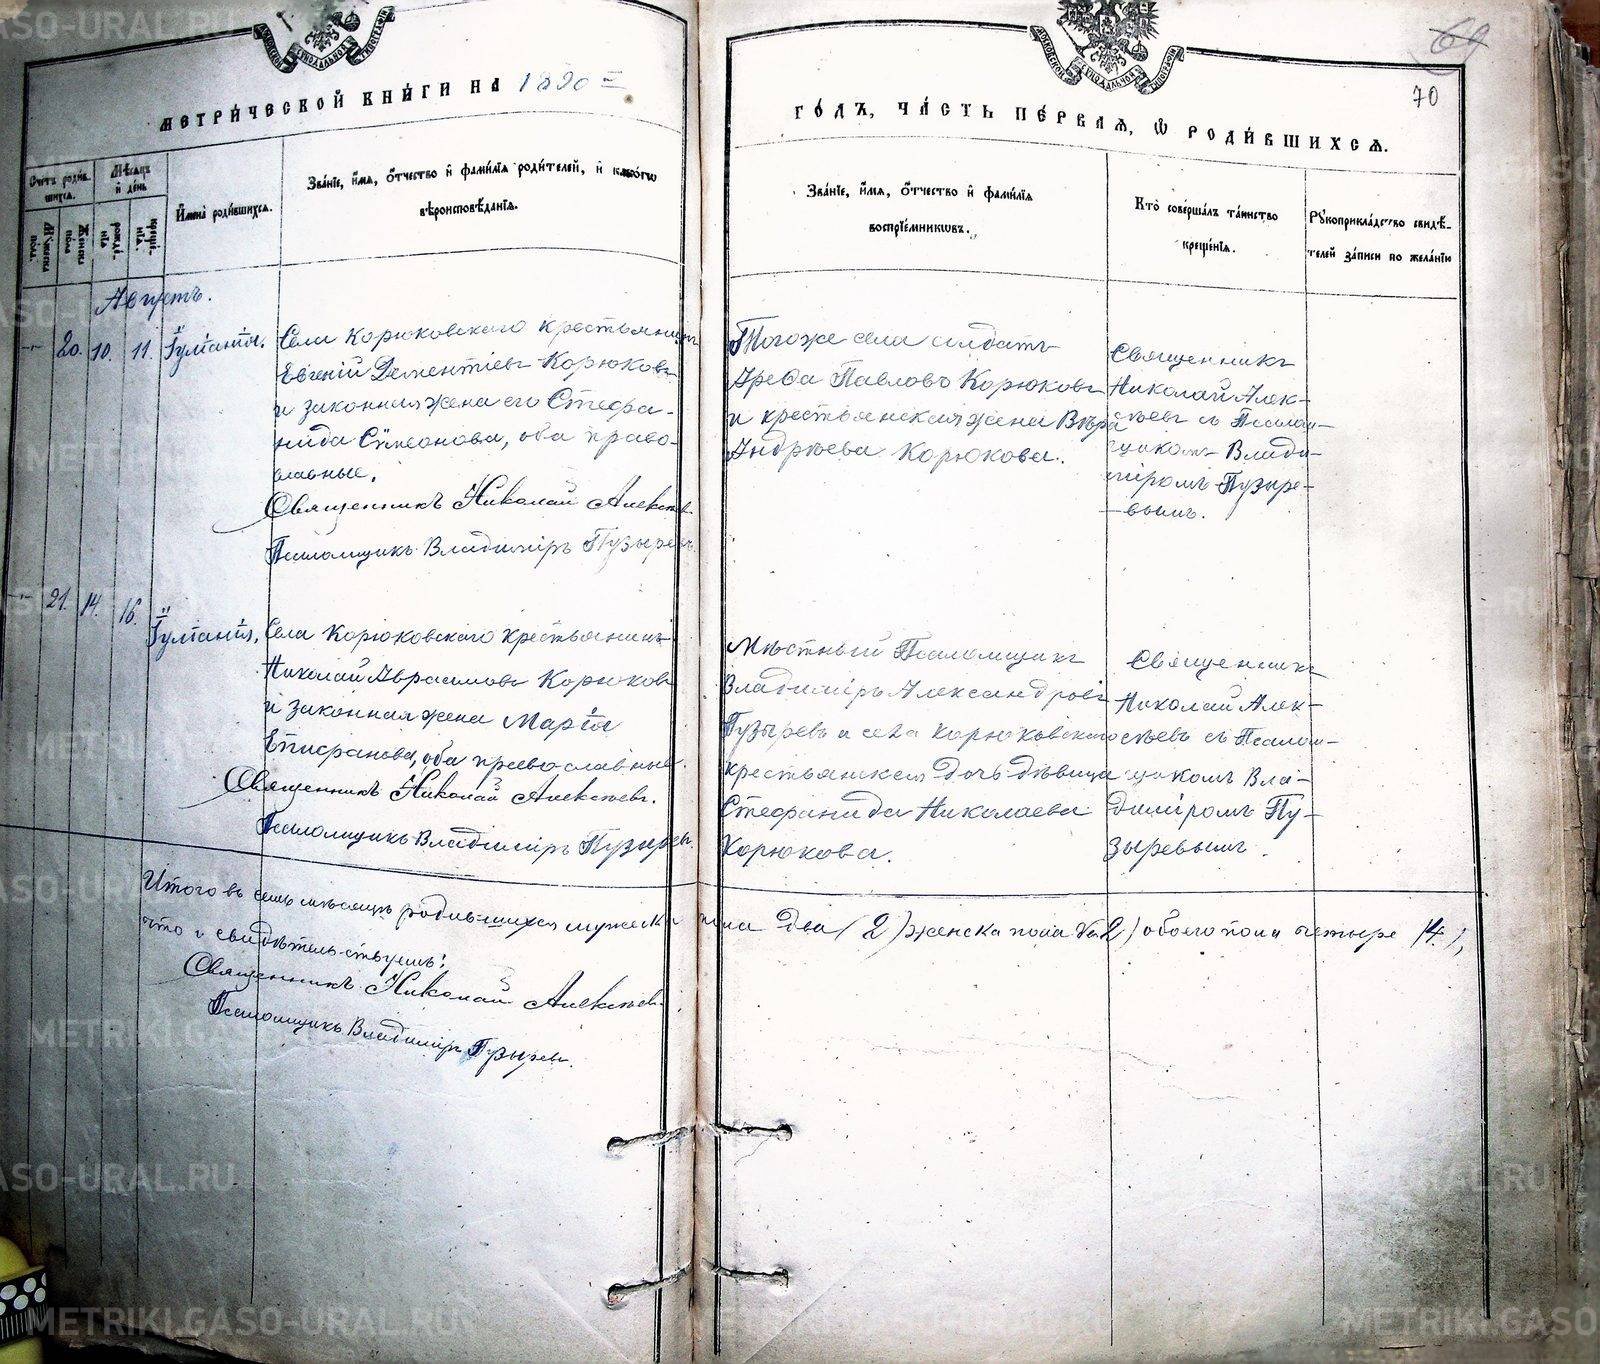 МЕТРИ́ЧЕСКОЙ КНИ́ГИ НА 1890 =
ГО́ДЪ, ЧА́СТЬ ПЕ́РВАѦ, Ѡ҆ РОДИ́ВШИХСѦ.
69
70
МОСКОВСКОЙ СѴНОДАЛЬНОЙ ТИПОГРАФІИ
МОСКОВСКОЙ СѴНОДАЛЬНОЙ ТИПОГРАФІИ
Счетъ роди́вшихся.
Мѣсяцъ и҆ де́нь
Мꙋжеска по́ла.
Же́нска по́ла
рожде́нїѧ
креще́нїѧ.
И҆мена̀ роди́вшихсѧ.
Зва́нїе, и҆́мѧ, ѻ҆́тчество и҆ фами́лїѧ роди́телей, и҆ како́гѡ
вѣроисповѣ́данїѧ.
Зва́нїе, и҆́мѧ, ѻ҆́тчество и҆ фами́лїѧ
воспрїе́мникѡвъ.
Кто̀ соверша́лъ та́инство
креще́нїѧ.
Рꙋкоприкла́дство свидѣ́-
телей за́писи по жела́нїю
Августъ.
20. 10. 11. Іулианія.
Села Корюковскаго крестьянинъ
Евгеній Дементіевъ Корюковъ
и законная жена его Стефа-
нида Сѷмеонова, оба право-
славные.
Священникъ Николай Алексѣевъ
Псаломщикъ Владиміръ Пузыревъ.
Тогоже села солдатъ
Павловъ Корюковъ
и крестьянская жена Вѣра
Андрѣева Корюкова.
Священникъ
Николай Алек-
сѣевъ съ Псалом-
щикомъ Влади-
міромъ Пузыре-
вымъ.
21. 14. 16. Іуліанія.
Села Корюковскаго крестьянинъ
Николай Аврамовъ Корюковъ
и законная жена Марія
Епифанова, оба православные.
Священникъ Николай Алексѣевъ.
Псаломщикъ Владиміръ Пузыревъ.
Мѣстный Псаломщикъ
Владиміръ Александровъ
Пузыревъ и села Корюковскаго
крестьянская дочь дѣвица
Стефанида Николаева
Корюкова.
Священникъ
Николай Алек-
сѣевъ съ Псалом-
щикомъ Вла-
диміромъ Пу-
зыревымъ.
Итого въ семъ мѣсяцѣ родившихся мужеска пола два (2) женска пола два (2) обоего пола четыре (4),
что и свидѣтельствуемъ:
Священникъ Николай Алексѣевъ
Псаломщикъ Владиміръ Пузыревъ.
METRIKI.GASO-URAL.RU